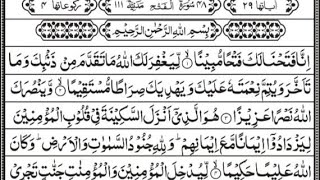 اٰیاتها ۲۹ ۴۸ سُوْرَةُ الْفَتْحِ مَدَنِيَّةٌ ۱۱۱ رکوعاتها ۴
بِسْمِ اللّٰهِ الرَّحْمٰنِ الرَّحِيْمِ
اِنَّا فَتَحْنَا لَكَ فَتْحًا مُّبِيْنًا ۙ لِّيَغْفِرَ لَكَ اللّٰهُ مَا تَقَدَّمَ مِنْ ذَنْۢبِكَ وَمَا
تَاَخَّرَ وَيُتِمَّ نِعْمَتَهٗ عَلَيْكَ وَيَهْدِيَكَ صِرَاطًا مُّسْتَقِيْمًا ۙ وَّيَنْصُرَكَ
اللّٰهُ نَصْرًا عَزِيْزًا ۞ هُوَ الَّذِيْٓ اَنْزَلَ السَّكِيْنَةَ فِيْ قُلُوْبِ الْمُؤْمِنِيْنَ
لِيَزْدَادُوْٓا اِيْمَانًا مَّعَ اِيْمَانِهِمْ ؕ وَلِلّٰهِ جُنُوْدُ السَّمٰوٰتِ وَالْاَرْضِ ؕ وَكَانَ
اللّٰهُ عَلِيْمًا حَكِيْمًا ۙ لِّيُدْخِلَ الْمُؤْمِنِيْنَ وَالْمُؤْمِنٰتِ جَنّٰتٍ تَجْرِيْ